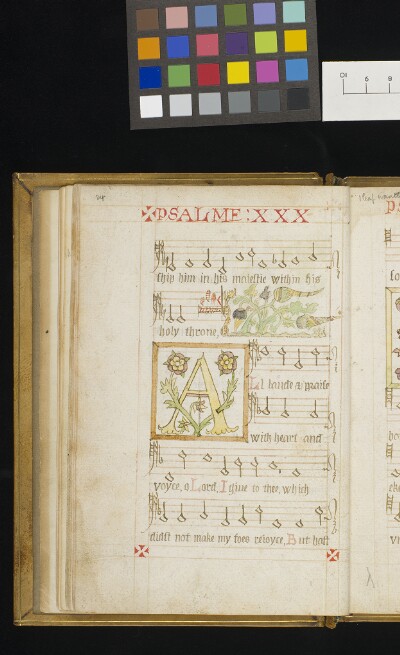 PSALME:XXX
ship him in his majestie within his
holy throne,
ALl laude & praise
with heart and
voyce, o Lord, I giue to thee, which
didst not make my foes reioyce, But hast